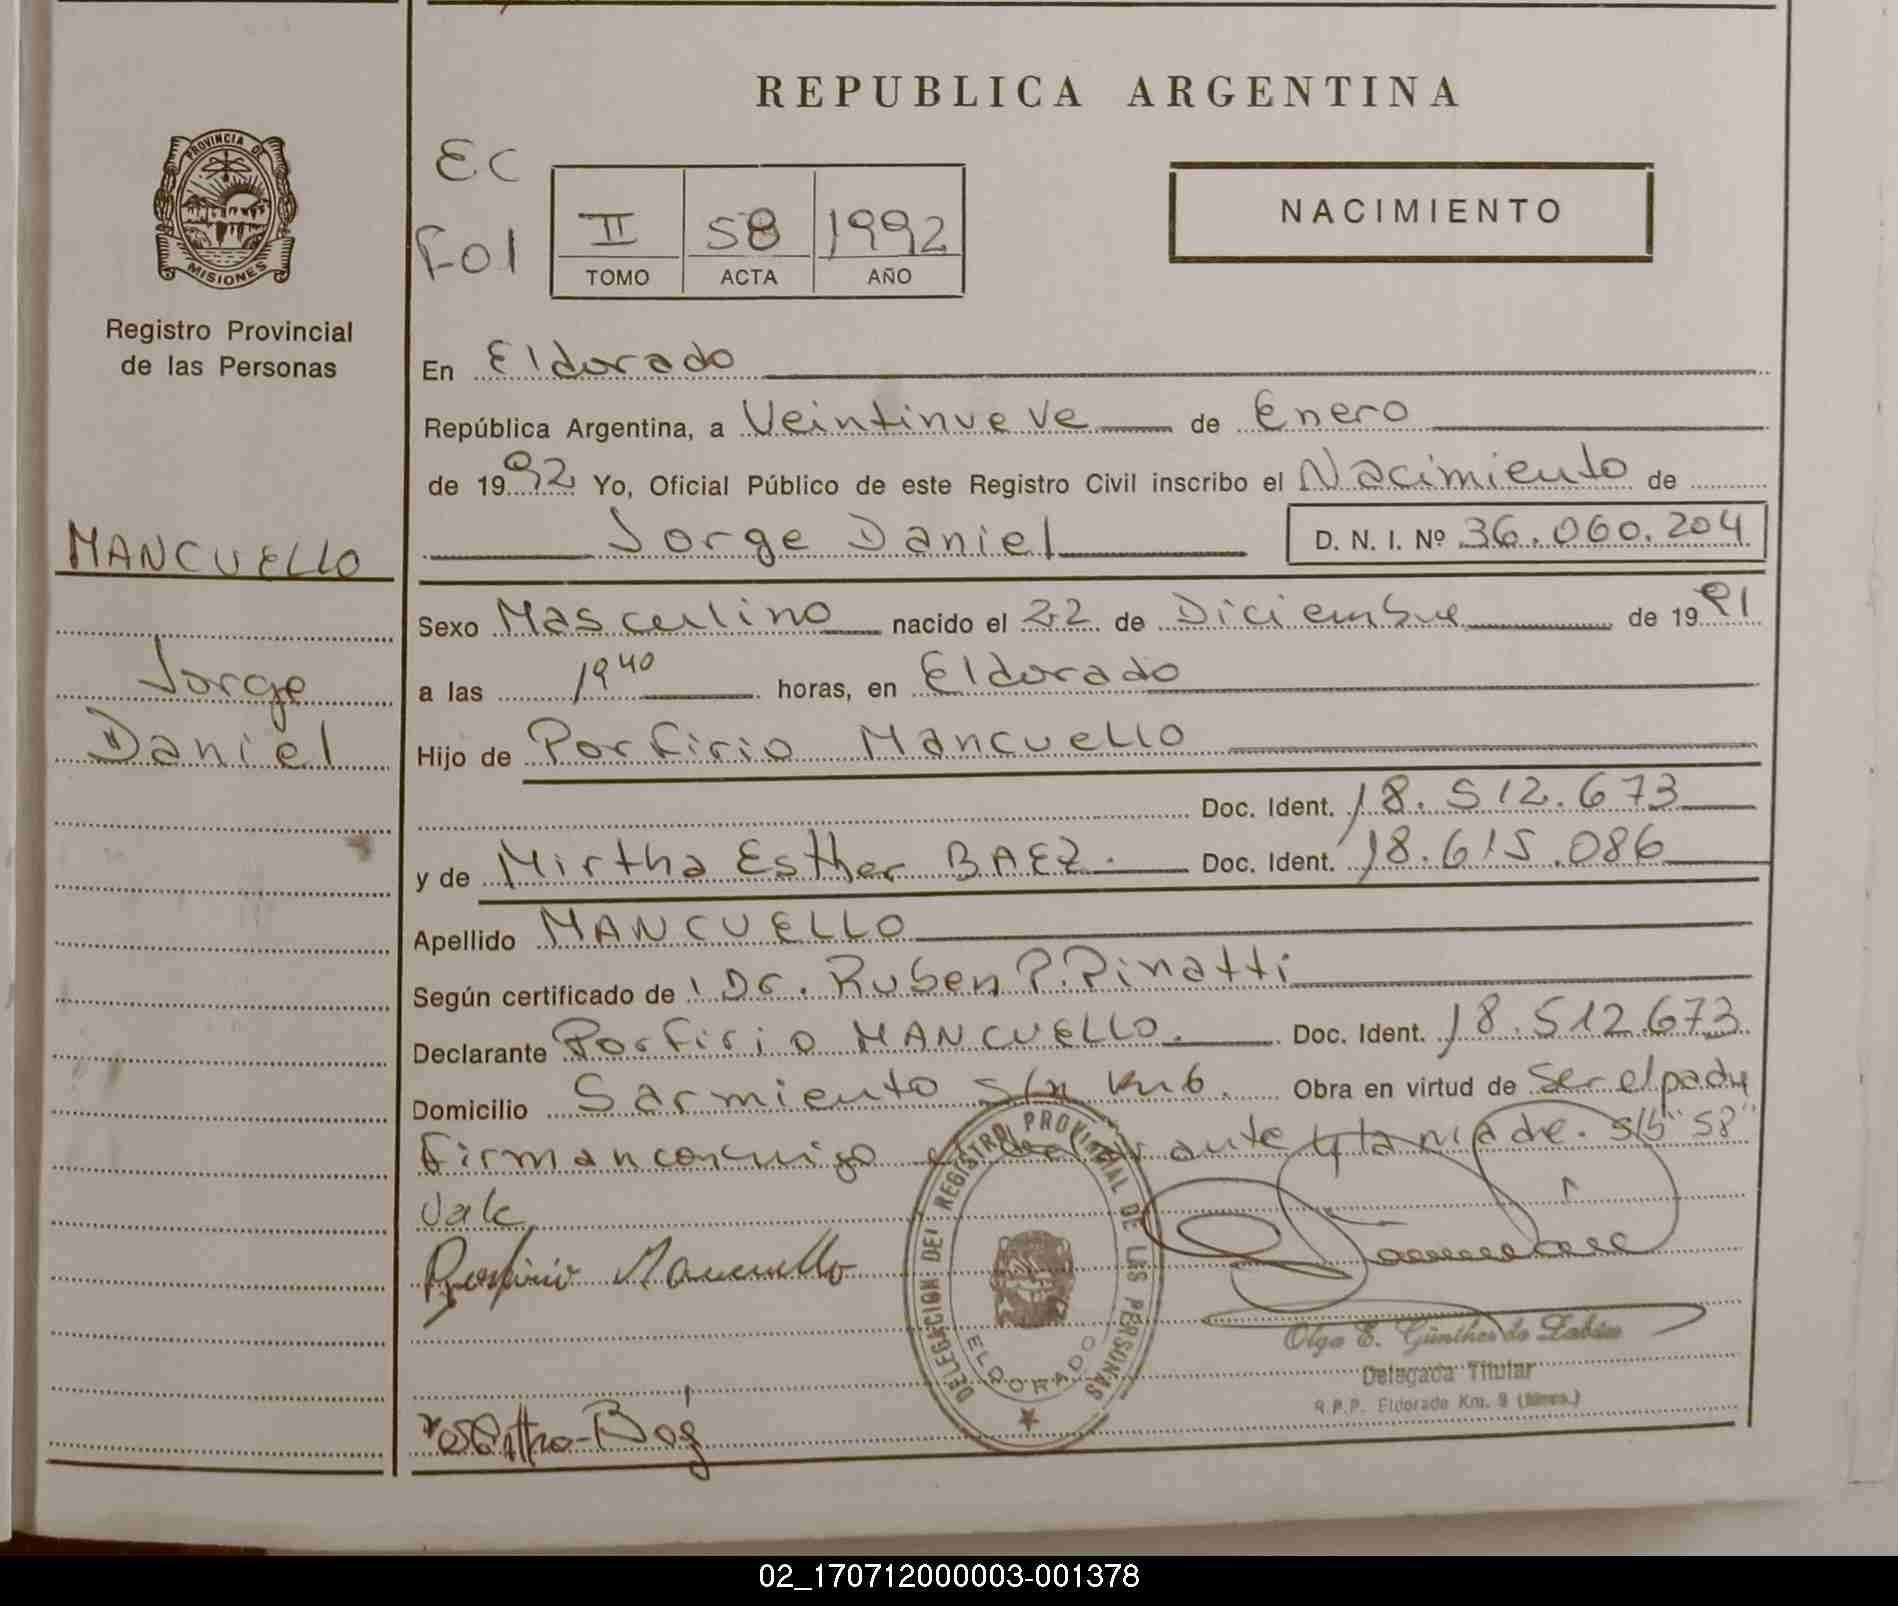 REPUBLICA ARGENTINA
PROVINCIA DE
MISIONES
Registro Provincial
de las Personas
EC
F01
II 58 1992
TOMO ACTA AÑO
NACIMIENTO
En Eldorado
República Argentina, a Veintinueve de Enero
de 1992 Yo, Oficial Público de este Registro Civil inscribo el Nacimiento de
MANCUELLO
Jorge Daniel D. N. I. Nº 36.060.204
Sexo Masculino nacido el 22 de Diciembre de 1991
Jorge
a las 19 40 horas, en Eldorado
Daniel
Hijo de Porfirio Mancuello
Doc. Ident. 18.512.673
y de Mirtha Esther BAEZ. Doc. Ident. 18.615.086
Apellido MANCUELLO
Según certificado de Dr. Ruben P. Pinatti
Declarante Porfirio MANCUELLO. Doc. Ident. 18.512.673
Domicilio Sarmiento s/n km 6. Obra en virtud de Ser el padre
Firman conmigo el declarante y la madre. s/b "58"
Vale
Porfirio Mancuello
DELEGACION DEL REGISTRO PROVINCIAL DE LAS PERSONAS
ELDORADO
Olga E. Günther de
Delegada Titular
R.P.P. Eldorado Km. 9 (Mnes.)
02_170712000003-001378